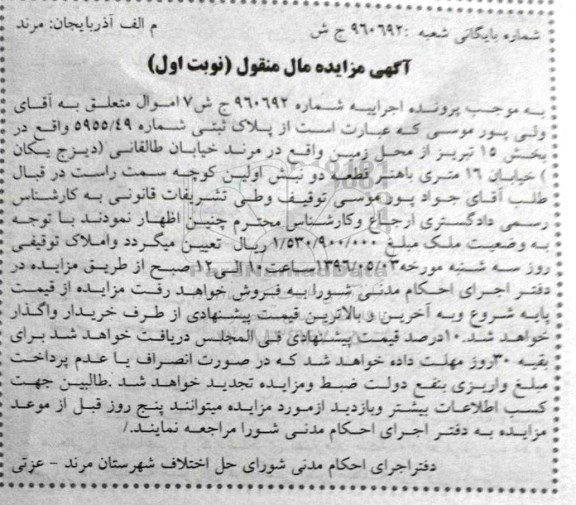 شماره بایگانی شعبه :۹۶۰۶۹۲ ج ش
م الف آذربایجان: مرند
آگهی مزایده مال منقول (نوبت اول)
به موجب پرونده اجراییه شماره ۹۶۰۶۹۲ ج ش۷ اموال متعلق به آقای
ولی پور موسی که عبارت است از پلاک ثبتی شماره ۵۹۵۵/۴۹ واقع در
بخش ۱۵ تبریز از محل زمین واقع در مرند خیابان طالقانی (دیزج یکان
) خیابان ۱۶ متری باهنر قطعه دو نبش اولین کوچه سمت راست در قبال
طلب آقای جواد پور موسی توقیف وطی تشریفات قانونی به کارشناس
رسمی دادگستری ارجاع وکارشناس محترم چنین اظهار نمودند با توجه
به وضعیت ملک مبلغ ۱/۵۳۰/۹۰۰/۰۰۰ ریال تعیین میگردد واملاک توقیفی
روز سه شنبه مورخه ۱۳۹۶/۰۵/۰۳ساعت ۱۰ الی ۱۲ صبح از طریق مزایده در
دفتر اجرای احکام مدنی شورا به فروش خواهد رفت مزایده از قیمت
پایه شروع وبه آخرین و بالاترین قیمت پیشنهادی از طرف خریدار واگذار
خواهد شد.۱۰درصد قیمت پیشنهادی فی المجلس دریافت خواهد شد برای
بقیه ۳۰روز مهلت داده خواهد شد که در صورت انصراف یا عدم پرداخت
مبلغ واریزی بنفع دولت ضبط ومزایده تجدید خواهد شد .طالبین جهت
کسب اطلاعات بیشتر وبازدید ازمورد مزایده میتوانند پنج روز قبل از موعد
مزایده به دفتر اجرای احکام مدنی شورا مراجعه نمایند./
دفتراجرای احکام مدنی شورای حل اختلاف شهرستان مرند - عزتی